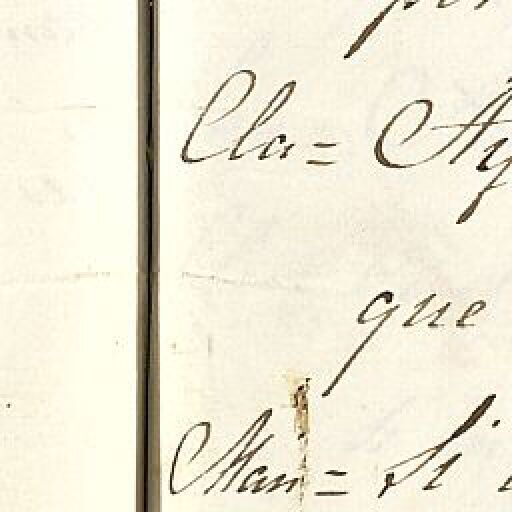 Cla= Ay
que
Man= Si